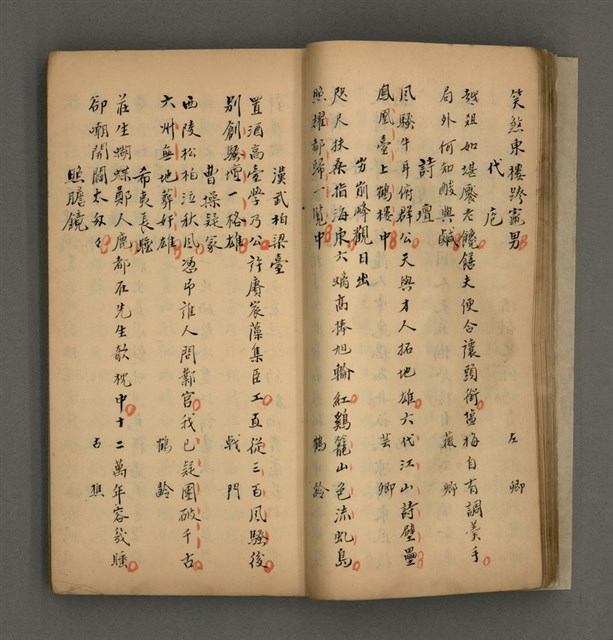 笑煞東樓跨竈男　左卿
代庖
越俎如堪廖老饞饕夫便合讓頭銜鹽梅自有調羹手
局外何知酸與鹹　薇卿
詩壇
風騷牛耳俯群公天與才人拓地雄六代江山詩壁壘
鳳凰臺上鶴樓中　芸卿
勞崩峰觀日出
咫尺扶桑指海東六螭高捧旭輪紅鷄籠山色流虬島
照耀都歸一覽中　鶴齡
漢武柏梁臺
置酒高臺學乃公許賡宸藻集臣工直從三百風騷後
別創騷壇一格雄　戟門
曹操疑冢
西陵松柏泣秋風憑弔誰人問鄴宮我已疑團破千古
六州無地葬奸雄　鶴齡
希夷長睡
莊生蝴蝶鄭人鹿都在先生欹枕中十二萬年容幾睡
卻嘲開闢太匆々　古樵
照膽鏡